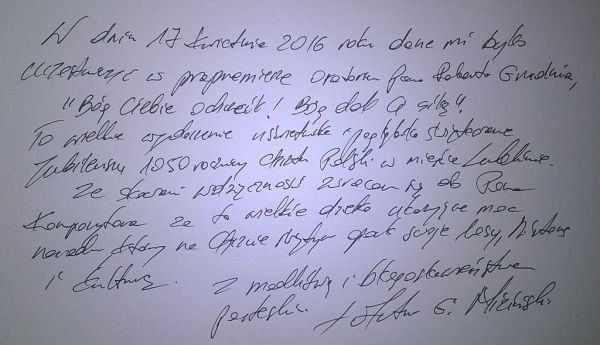 W dniu 17 kwietnia 2016 roku dane mi było
uczestniczyć w prapremierze Oratorium Pana Roberta Grudnia,
"Bóg Ciebie ochrzcił! Bóg dał Ci siłę".
To wielkie wydarzenie uświetniło i pogłębiło świętowanie
Jubileuszu 1050 rocznicy Chrztu Polski w mieście Lublinie.
Ze słowami wdzięczności zwracam się do Pana
Kompozytora za to wielkie dzieło ukazujące moc
narodu który na Chrzcie Świętym oparł swoje losy, historię
i kulturę. Z modlitwą i błogosławieństwem
pasterskim